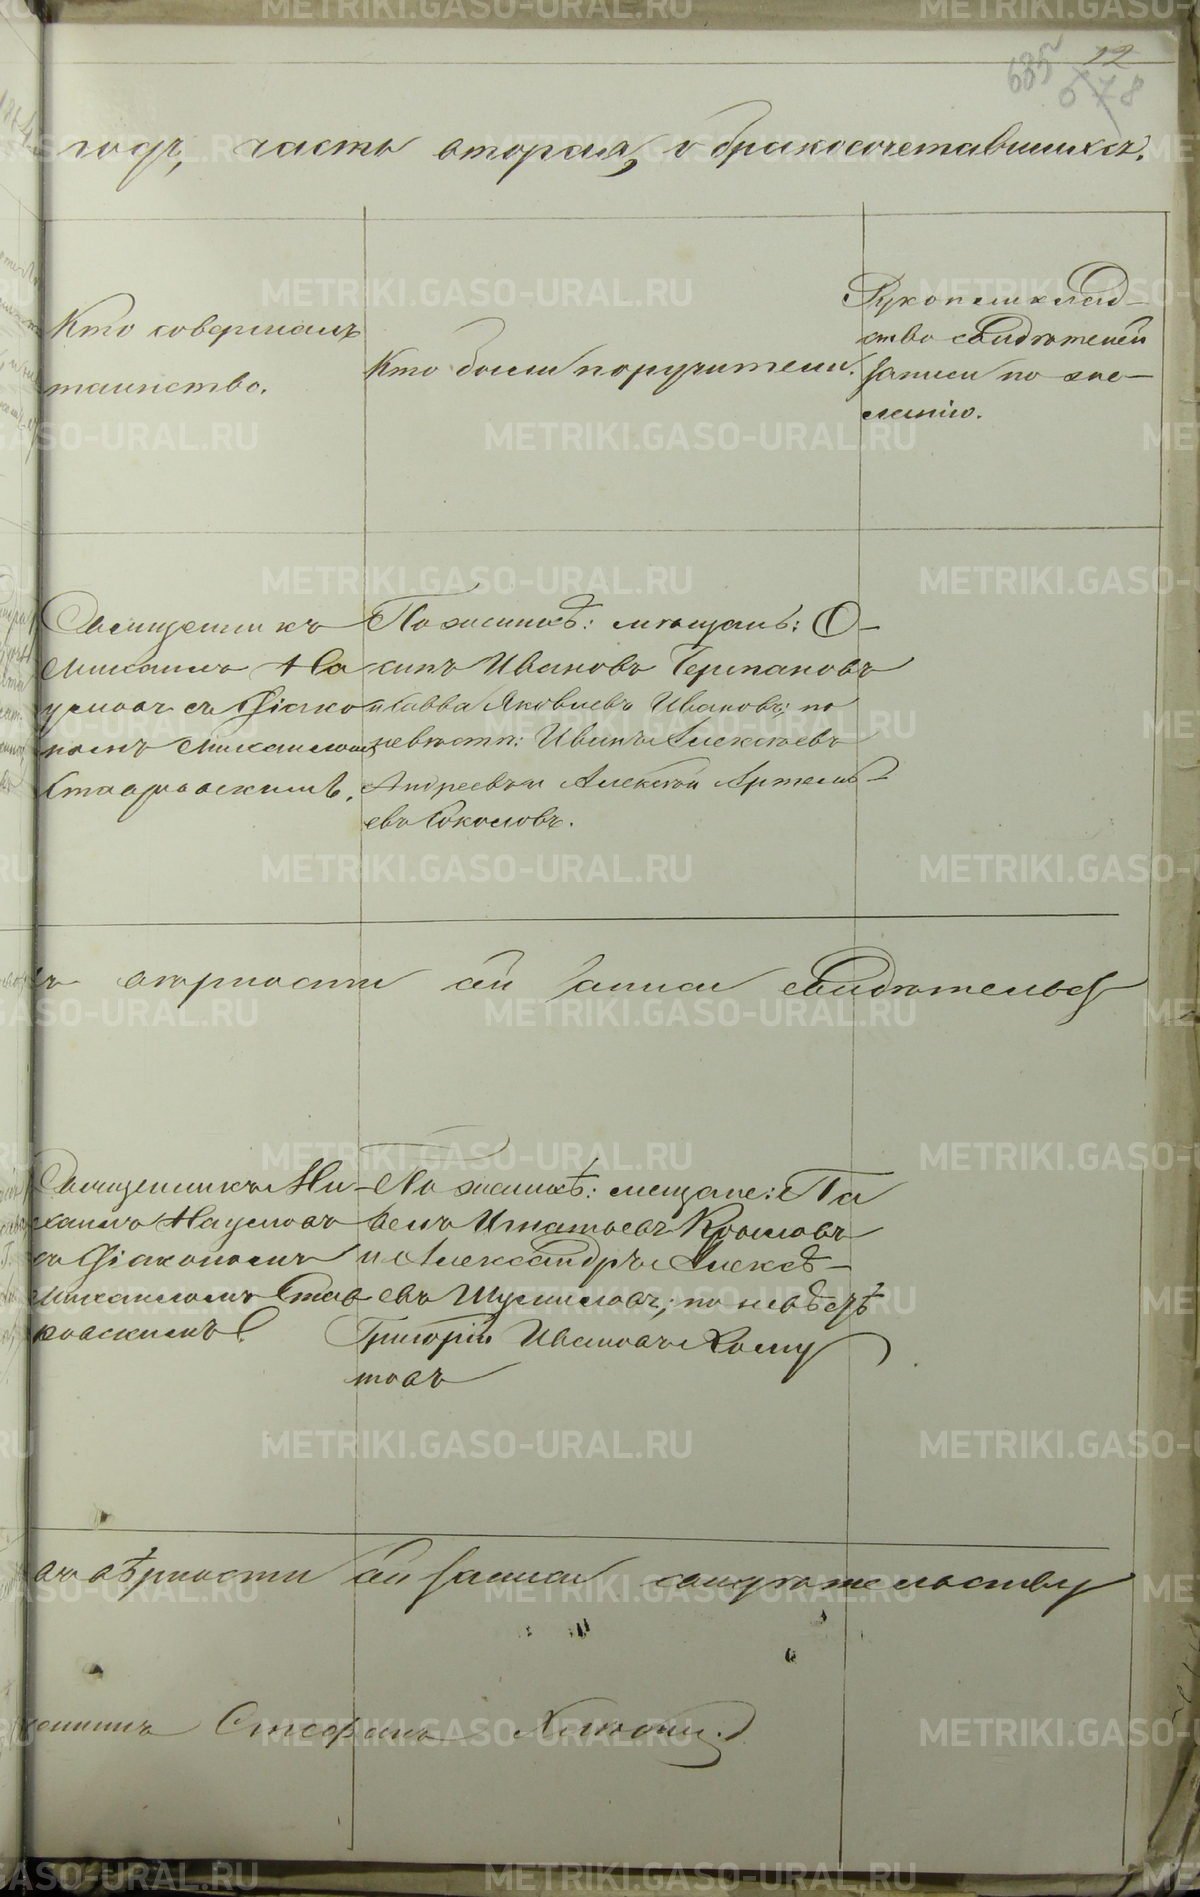 12
635
678
годъ, часть вторая, о бракосочетавшихся.
Кто совершалъ
таинство.
Кто были поручители.
Рукоприклад-
ство свидѣтелей
записи по же-
ланію.
Священникъ
Михаилъ На
умовъ съ діако
номъ Михаиломъ
Ставровскимъ.
По женихѣ: мѣщанъ: О-
сипъ Ивановъ Германовъ
и Савва Яковлевъ Ивановъ; по
невѣстѣ: Иванъ Алексѣевъ
Андреевъ и Алексѣй Артемь-
евъ Соколовъ.
вѣрности сей записи свидѣтельст
Священникъ Ми-
хаилъ Наумовъ
съ діакономъ
Михаиломъ Став
ровскимъ.
По женихѣ: мещане: Па
велъ Игнатьевъ Крыловъ
и Александръ Алексѣ-
евъ Шумиловъ; по невѣстѣ
Григорій Ивановъ Хому
товъ
въ вѣрности сей записи свидѣтельству
Стефанъ
METRIKI.GASO-URAL.RU